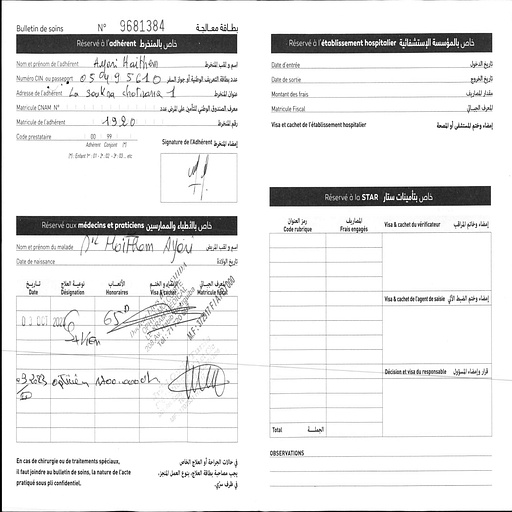 Bulletin de soins N° 9681384 بطـاقة معـالجـة
Réservé à l'adhérent خاص بالمنخرط
Nom et prénom de l'adhérent Ayari Haithem اسم و لقب المنخرط
Numéro CIN ou passeport 05495610 عدد بطاقة التعريف الوطنية أو جواز السفر
Adresse de l'adhérent La soukra chotrana 1 عنوان المنخرط
Matricule CNAM N° معرف الصندوق الوطني للتأمين على المرض عدد
Matricule de l'adhérent 1920 رقم المنخرط
Code prestataire 00 99
Adhérent Conjoint (*)
(*). Enfant N° : 01 - 2ᵉ : 02 - 3ᵉ : 03... etc
Signature de l'Adhérent إمضاء المنخرط
Réservé aux médecins et praticiens خاص بالأطباء والممارسين
Nom et prénom du malade Mr Haithem Ayari اسم و لقب المريض
Date de naissance تاريخ الولادة
تـاريـخ نوعية العـلاج الأتعـاب الإمضاء و الختم المعرف الجبـائي
Date Désignation Honoraires Visa & cachet Matricule fiscal
03 OCT 65D
M.F:
2023
En cas de chirurgie ou de traitements spéciaux,
il faut joindre au bulletin de soins, la nature de l'acte
pratiqué sous pli confidentiel.
في حالات الجراحة أو العلاج الخاص
يجب مصاحبة بطاقة العلاج، بنوع العمل المنجز،
في ظرف سرّي.
Réservé à l'établissement hospitalier خاص بالمؤسسة الإستشفائية
Date d'entrée تاريخ الدخول
Date de sortie تاريخ الخروج
Montant des frais مقدار المصاريف
Matricule Fiscal المعرف الجبـائي
Visa et cachet de l'établissement hospitalier إمضاء وختم المستشفى أو المصحة
Réservé à la STAR خاص بتأمينات ستار
رمز العنوان المصاريف
Code rubrique Frais engagés
Visa & cachet du vérificateur إمضاء وخاتم المراقب
Visa & cachet de l'agent de saisie إمضاء وختم الضبط الآلي
Décision et visa du responsable قرار وإمضاء المسؤول
Total الجملـــة
OBSERVATIONS